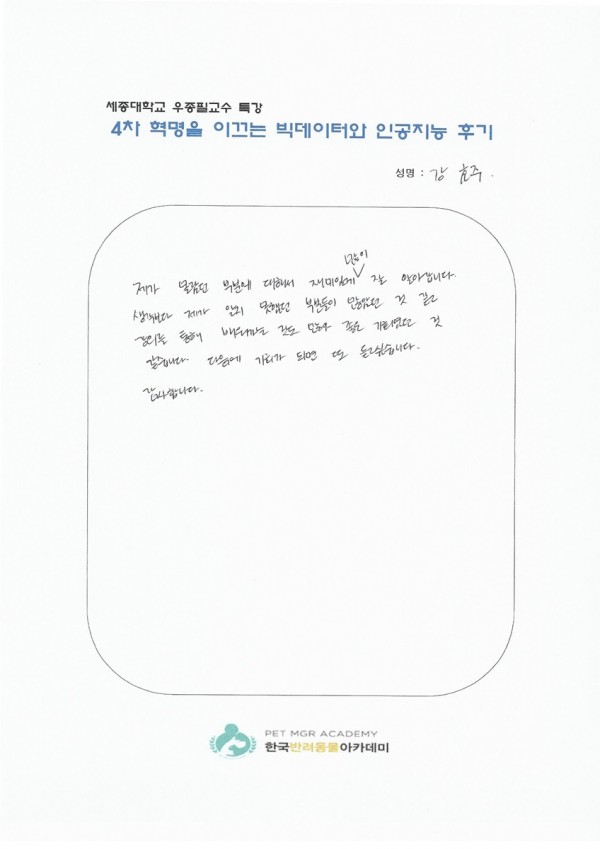 세종대학교 우종필교수 특강
4차 혁명을 이끄는 빅데이터와 인공지능 후기
성명 : 강 효주.
많이
제가 몰랐던 부분에 대해서 재미있게 잘 알아갑니다.
생각보다 제가 알지 못했던 부분들이 많았던 것 같고
강의를 통해 배워가는 것도 많아 좋은 기회였던 것
같습니다. 다음에 기회가 되면 또 듣고싶습니다.
감사합니다.
PET MGR ACADEMY
한국반려동물아카데미